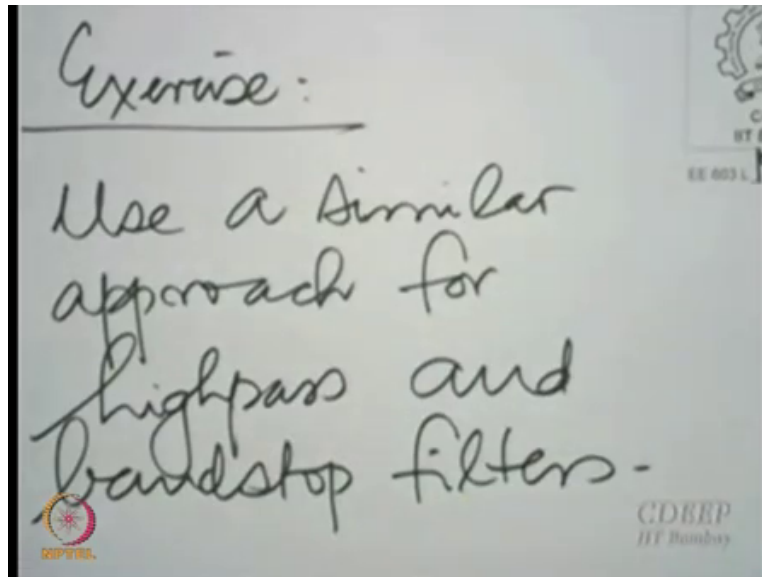 Exercise:
Use a similar
approach for
highpass and
bandstop filters.
EE 603 L
NPTEL
CDEEP
IIT Bombay